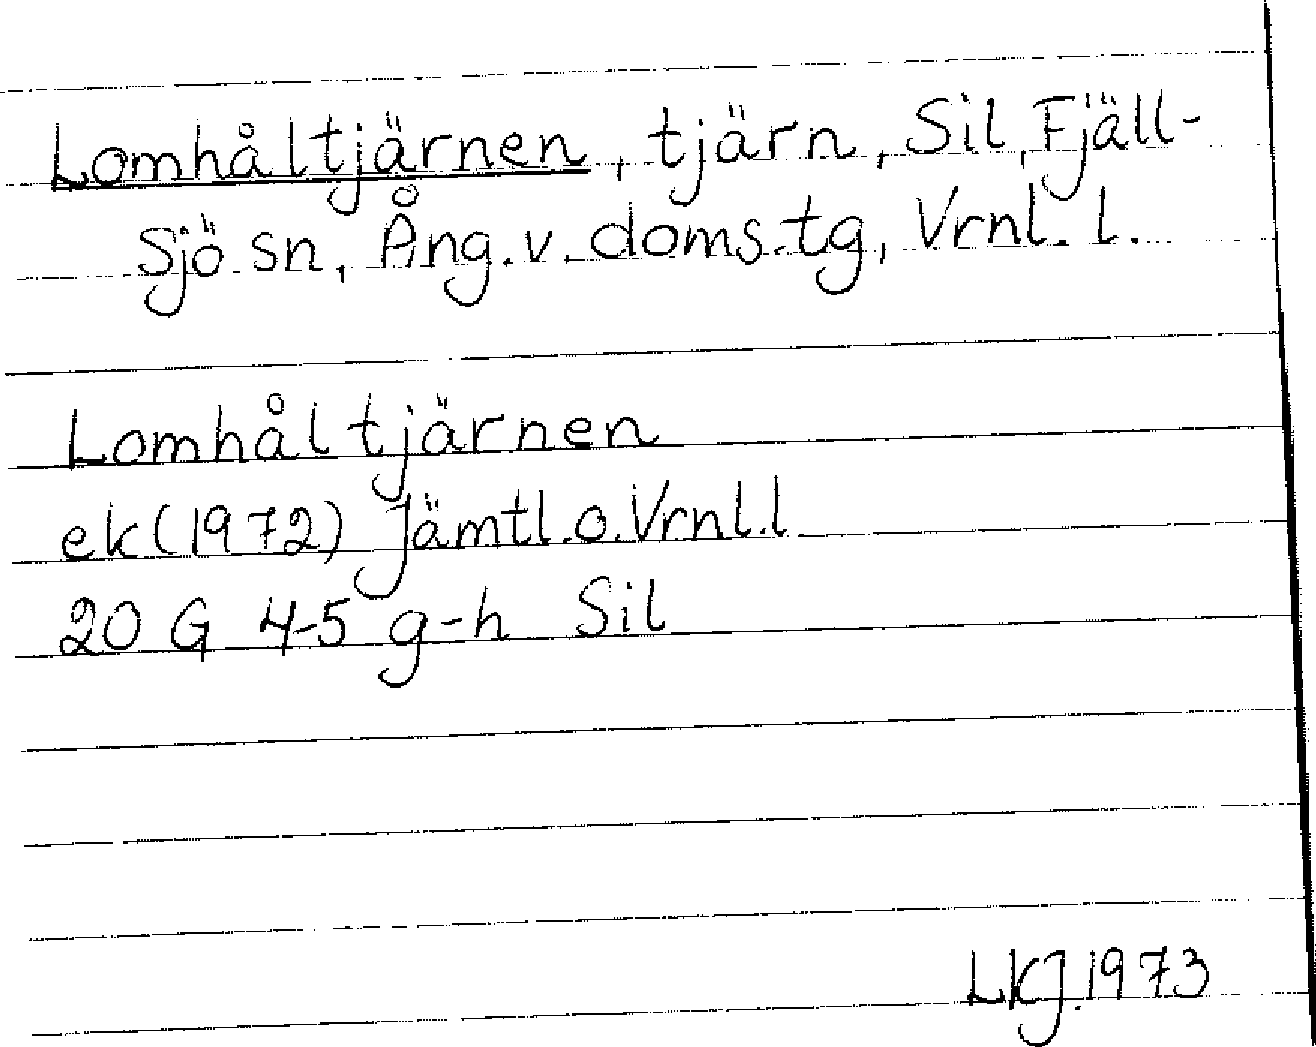 Lomhåltjärnen, tjärn, Sil, Fjäll-
sjö sn, Ång. v. doms.tg, Vrnl. l.
Lomhåltjärnen
ek (1972) Jämtl. o. Vrnl. l
20 G 4-5 g-h Sil
LKJ. 1973